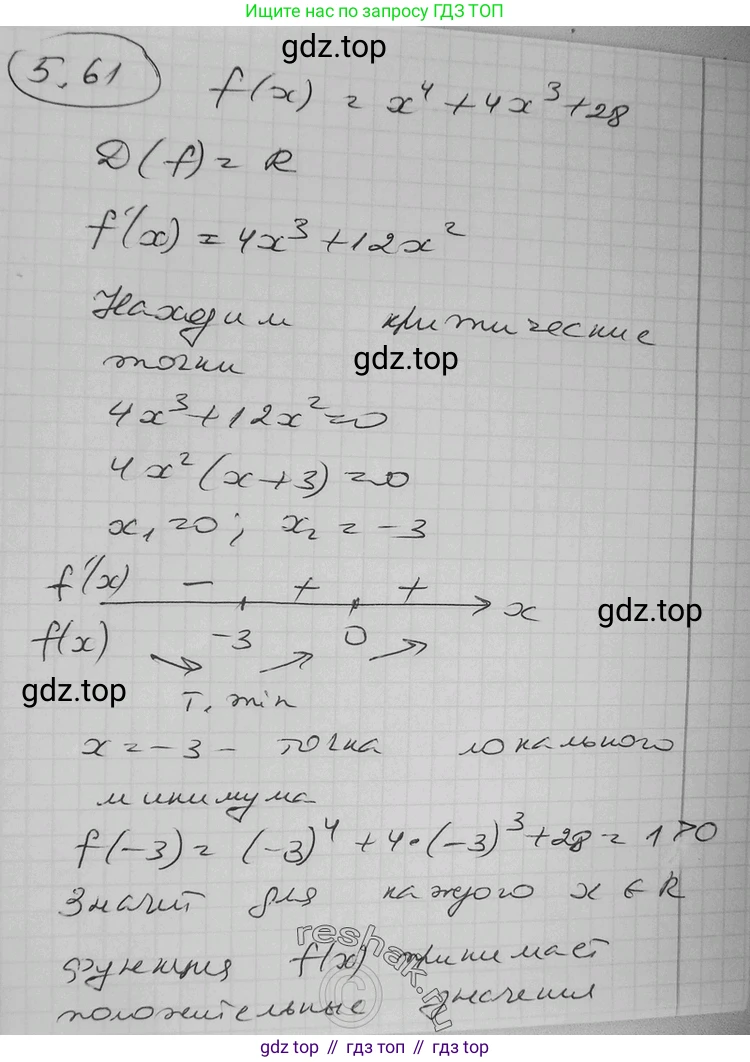 Ищите нас по запросу ГДЗ ТОП
gdz.top
5.61
f(x) = x⁴ + 4x³ + 28
D(f) = R
f'(x) = 4x³ + 12x²
Находим критические
точки
gdz.top
4x³ + 12x² = 0
4x²(x + 3) = 0
x₁ = 0 ; x₂ = -3
f'(x) − + +
x
gdz.top
f(x) -3 0
gdz.top
т. min
x = -3 - точка локального
минимума
f(-3) = (-3)⁴ + 4·(-3)³ + 28 = 1 > 0
Значит для каждого x ∈ R
функция f(x) принимает
положительные значения
reshak.ru
©
gdz.top // gdz.top // gdz.top